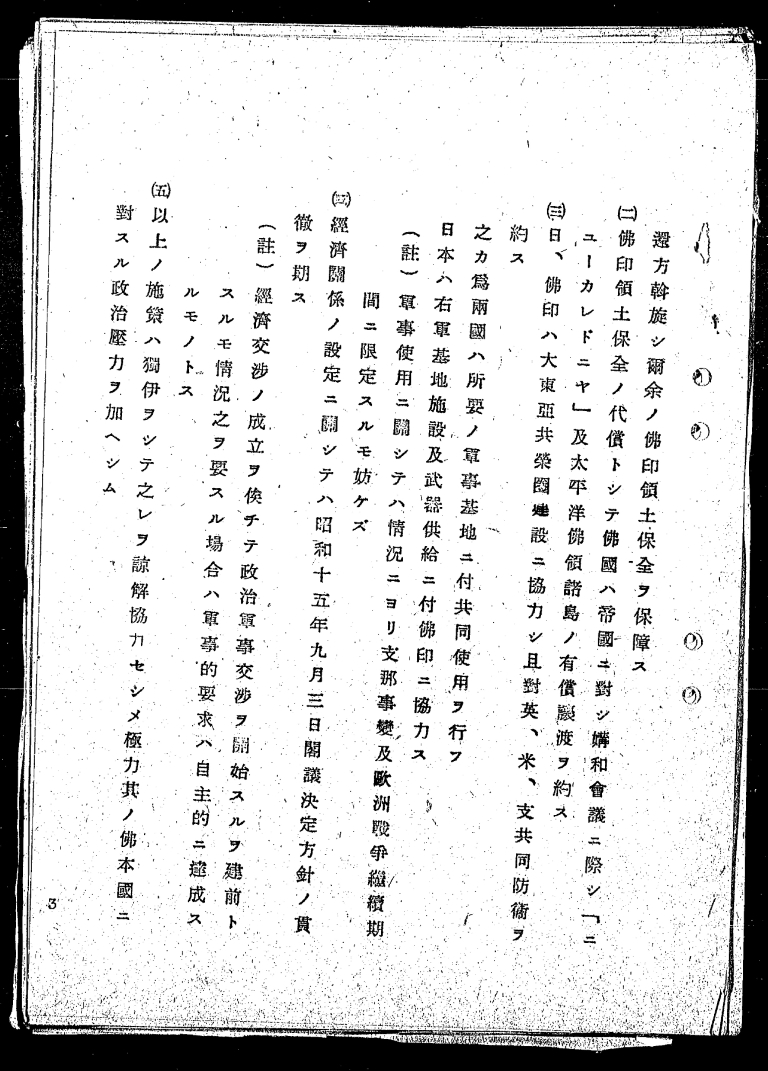 還方斡旋シ爾余ノ佛印領土保全ヲ保障ス
㈡佛印領土保全ノ代償トシテ佛國ハ帝國ニ對シ媾和會議ニ際シ「ニ
ユーカレドニヤ」及太平洋佛領諸島ノ有償讓渡ヲ約ス
㈢日、佛印ハ大東亞共榮圈建設ニ協力シ且對英、米、支共同防衞ヲ
約ス
之カ爲兩國ハ所要ノ軍事基地ニ付共同使用ヲ行フ
日本ハ右軍基地施設及武器供給ニ付佛印ニ協力ス
（註）軍事使用ニ關シテハ情況ニヨリ支那事變及歐洲戰爭繼續期
間ニ限定スルモ妨ケズ
㈣經濟關係ノ設定ニ關シテハ昭和十五年九月三日閣議決定方針ノ貫
徹ヲ期ス
（註）經濟交涉ノ成立ヲ俟チテ政治軍事交涉ヲ開始スルヲ建前ト
スルモ情況之ヲ要スル場合ハ軍事的要求ハ自主的ニ達成ス
ルモノトス
㈤以上ノ施策ハ獨伊ヲシテ之レヲ諒解協力セシメ極力其ノ佛本國ニ
對スル政治壓力ヲ加ヘシム
3